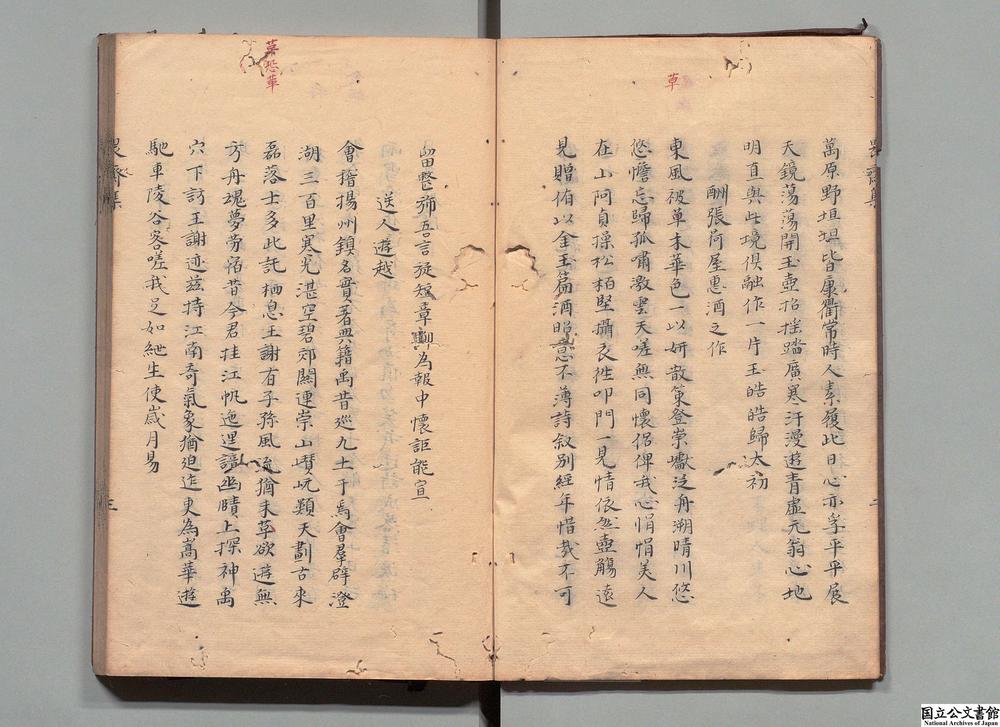 草
萬原野垣坦皆康衢常時人素履此日心亦孚平平展
天鏡蕩蕩開玉壺招搖踏廣寒汗漫遊青虛元翁心地
明直與此境俱融作一片玉皓皓歸太初
酬張荷屋惠酒之作
東風被草木華色一以妍散策登崇巘泛舟溯晴川悠
悠憺忘歸孤嘯激雲天嗟無同懷侶俾我心悁悁美人
在山阿貞操松柏堅攝衣徃叩門一見情依然壺觴遠
見贈侑以金玉篇酒照意不薄詩敘別經年惜哉不可
二
草恐華
留整斾吾言旋短章輒為報中懷詎能宣
送人遊越
會稽揚州鎮名實著典籍禹昔巡九土于焉會羣辟澄
湖三百里寒光湛空碧郊關連崇山巑岏顥天劃古來
磊落士多此託栖息王謝有子孫風流猶未草欲遊無
方舟魂夢勞宿昔今君挂江帆迤邐諧幽賾上探神禹
穴下訪王謝迹茲持江南奇氣象猶迫迮更為嵩華遊
馳車陵谷客嗟我足如紲坐使歲月易
畏齋集
三
国立公文書館
National Archives of Japan